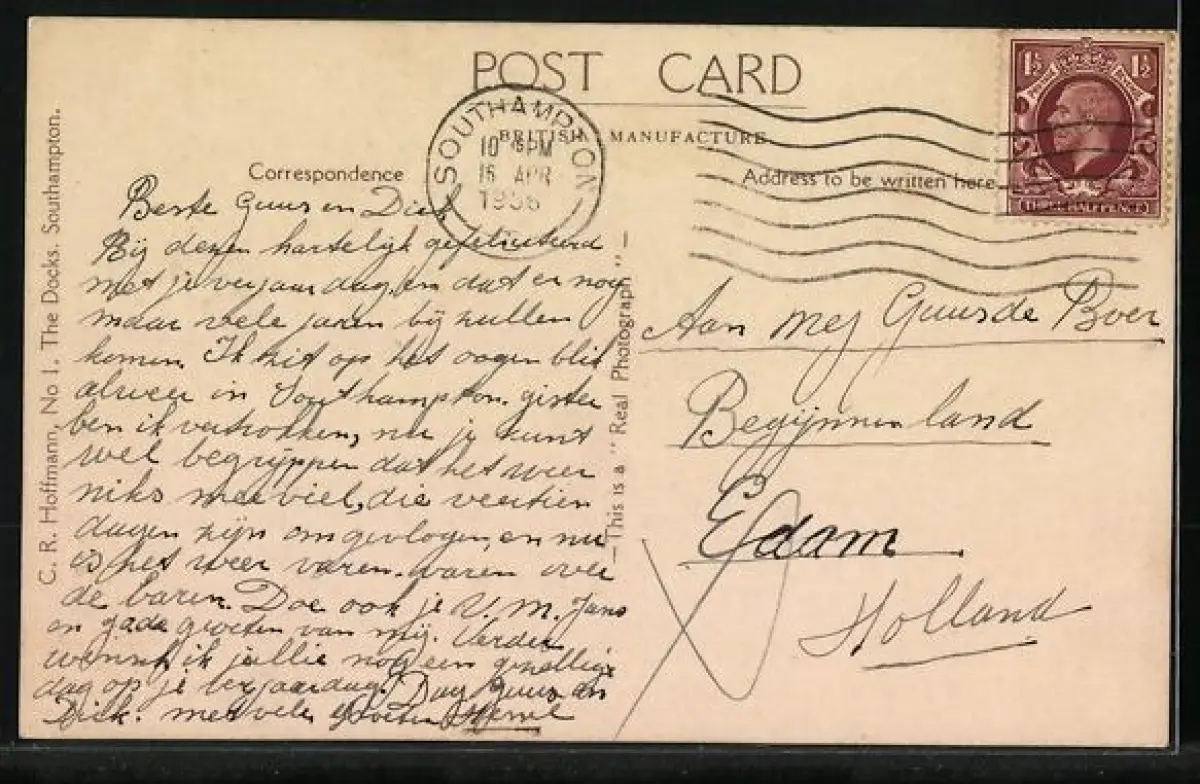 POST CARD
BRITISH MANUFACTURE
SOUTHAMPTON
10 PM
16 APR
1936
1½ 1½
POSTAGE
Correspondence
Address to be written here
C. R. Hoffmann, No 1, The Docks. Southampton.
This is a "Real Photograph"
Beste Guus en Dick
Bij dezen hartelijk gefeliciteerd
met je verjaardag, en dat er nog
maar vele jaren bij zullen
komen. Ik zit op het oogen blik
alweer in Southampton. gister
ben ik vertrokken, nu je kunt
wel begrijpen dat het weer
niks mee viel, die veertien
dagen zijn omgevlogen, en nu
is het weer varen. varen over
de baren. Doe ook je V. M. Jans
en groeten van mij. Verder
wensch ik jullie nog een gezellige
dag op je verjaardag. Dag Guus en
Dick. met vele groeten
Aan Mej Guus de Boer
Begijnenland
Edam
Holland